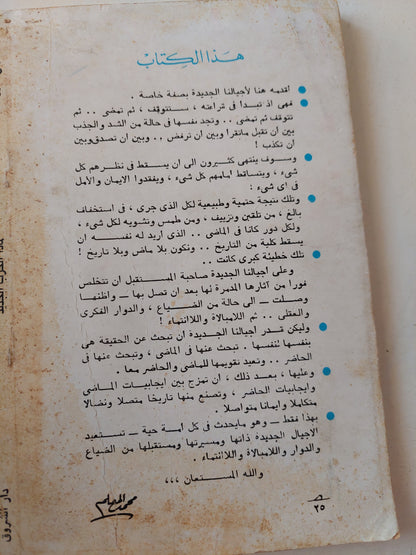 هذا الكتاب
● أقدمه هنا لأجيالنا الجديدة بصفة خاصة .
● فهى اذ تبدأ فى قراءته ، ستتوقف ، ثم تمضى .. ثم
تتوقف ثم تمضى .. وتجد نفسها فى حالة من الشد والجذب
بين ان تقبل ماتقرأ وبين ان ترفض .. وبين ان تصدق وبين
ان تكذب !
● وسوف ينتهى كثيرون الى ان يسقط فى نظرهم كل
شىء ، ويتساقط امامهم كل شىء ، ويفقدوا الايمان والأمل
فى اى شىء :
● وتلك نتيجة حتمية وطبيعية لكل الذى جرى ، فى استخفاف
بالغ ، من تلقين وتزييف ، ومن طمس وتشويه لكل شىء ،
ولكل دور كان فى الماضى .. الذى اريد له نفسه ان
يسقط كلية من التاريخ .. ونكون بلا ماض وبلا تاريخ !
● تلك خطيئة كبرى كانت ..
وعلى أجيالنا الجديدة صاحبة المستقبل ان تتخلص
فورا من آثارها المدمرة لها بعد ان تصل بها — واظنها
وصلت — الى حالة من الضياع ، والدوار الفكرى
والعقلى .. ثم اللامبالاة واللاانتماء !
● وليكن قدر أجيالنا الجديدة ان تبحث عن الحقيقة هى
بنفسها لنفسها . تبحث عنها فى الماضى ، وتبحث عنها فى
الحاضر .. وتعيد تقويمها للماضى والحاضر معا .
● وعليها ، بعد ذلك ، ان تمزج بين ايجابيات الماضى
وايجابيات الحاضر ، وتصنع منها تاريخا متصلا ونضالا
متكاملا وايمانا متواصلا .
● بهذا فقط — وهو مايحدث فى كل امة حية — تستعيد
الاجيال الجديدة ذاتها ومسيرتها ومستقبلها من الضياع
والدوار واللامبالاة واللاانتماء .
والله المستعان ،،،
٢٥
دار الشروق